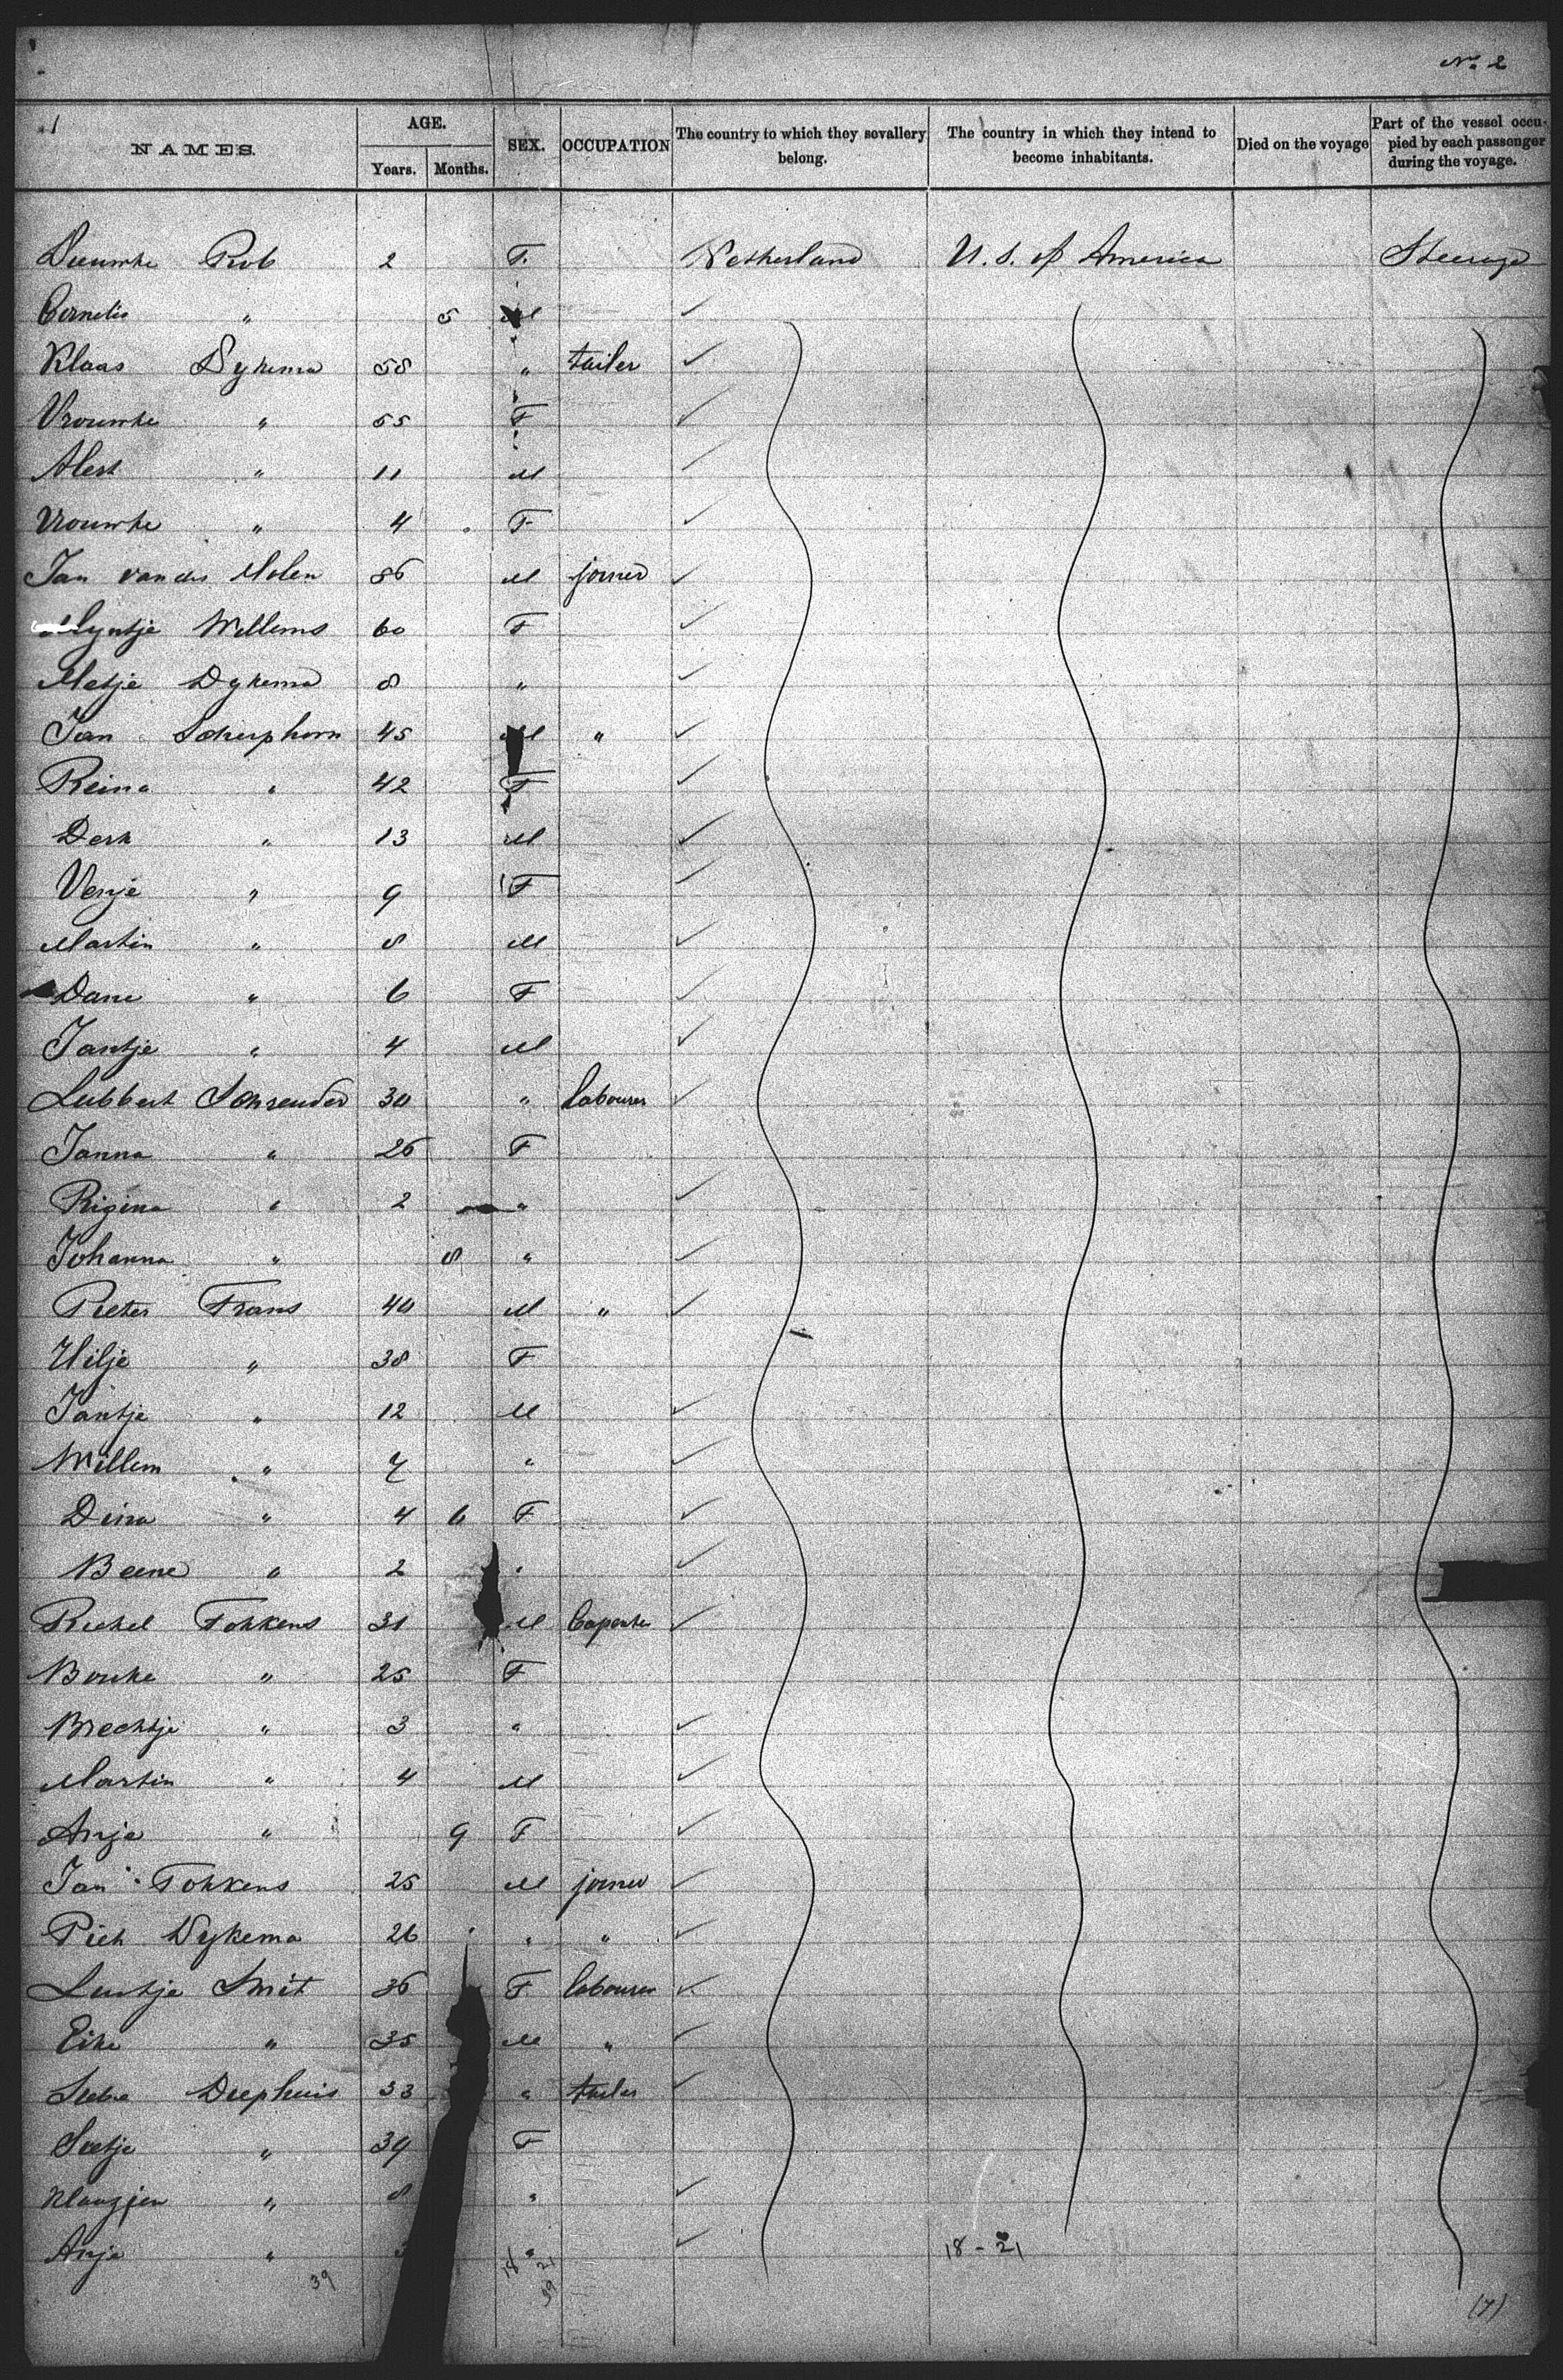 No. 2
NAMES. AGE. Years. Months. SEX. OCCUPATION The country to which they sevallery belong. The country in which they intend to become inhabitants. Died on the voyage Part of the vessel occupied by each passenger during the voyage.
Rob 2 F. Netherland U. S. of America Steerage
Cornelis " 5 M
Klaas Dykema 58 " tailer
Vrouwke " 55 F
Alert " 11 M
Vrouwke " 4 F
Jan van der Molen 56 M joiner
Myntje Willems 60 F
Metje Dykema 8 "
Jan Scherphorn 45 M "
Reina " 42 F
Derk " 13 M
Venje " 9 F
Martin " 8 M
Dane " 6 F
Jantje " 4 M
Lubbert Schreuder 30 " labourer
Janna " 26 F
Rigina " 2 "
Johanna " 8 "
Pieter Frans 40 M "
Hilje " 38 F
Jantje " 12 M
Willem " 7 "
Dina " 4 6 F
Beene " 2 "
Tokkens 31 M Capenter
Bouke " 25 F
Brechtje " 3 "
Martin " 4 M
Anje " 9 F
Jan Tokkens 25 M joiner
Piet Dykema 26 " "
Smit 36 F labourer
Eike " 35 M "
Diephuis 33 " tailer
" 39 F
Klaasjen " 8 "
Anje " 3 "
18 21 18 - 21
39 39
(7)